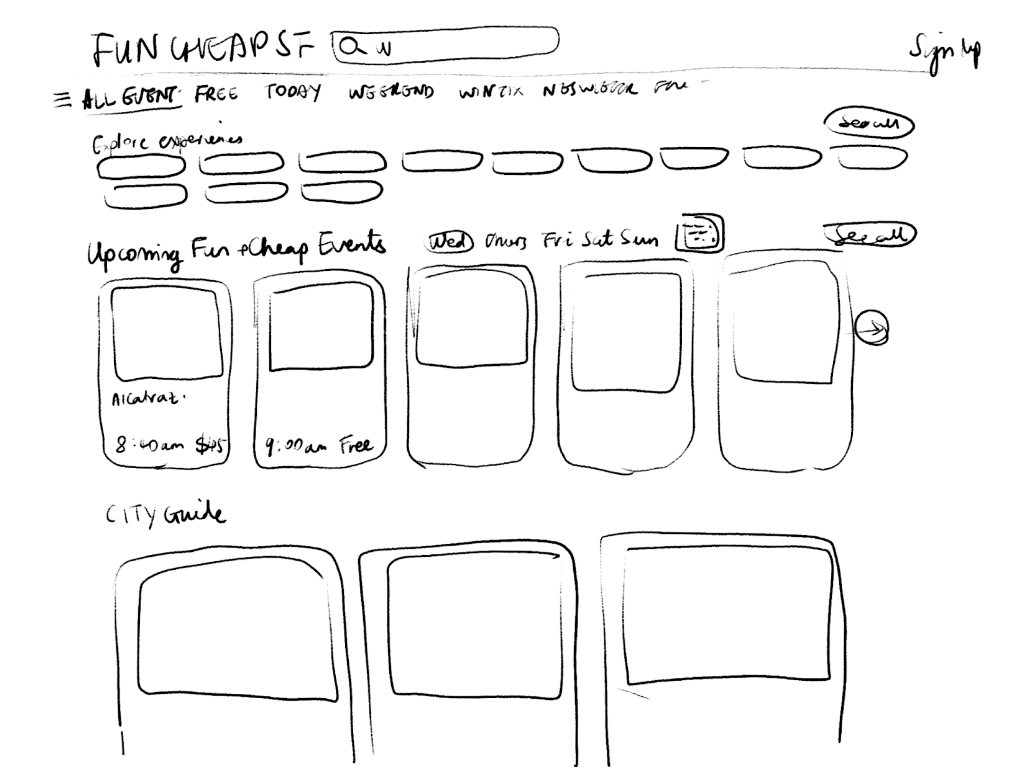 FUN CHEAP SF
Sign Up
ALL EVENT FREE TODAY WEEKEND WIN TIX
See all
Explore experiences
Upcoming Fun + Cheap Events Wed Thurs Fri Sat Sun See all
Alcatraz.
8:40am $45 9:00am Free
CITY Guide